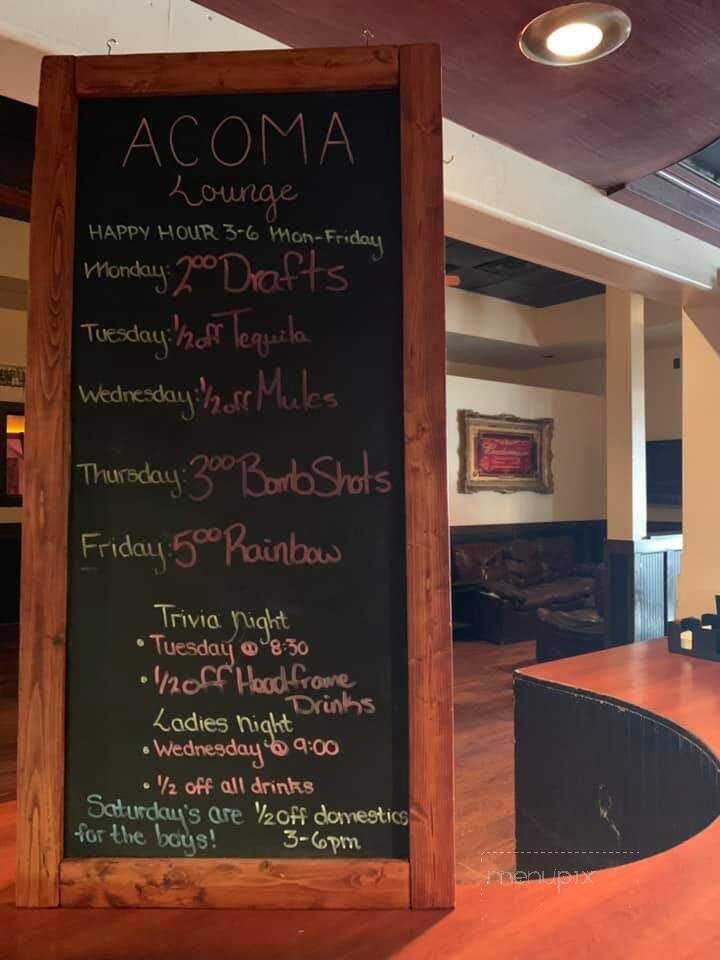 ACOMA
Lounge
HAPPY HOUR 3-6 Mon-Friday
Monday: 2⁰⁰ Drafts
Tuesday: 1/2 off Tequila
Wednesday: 1/2 off Mules
Thursday: 3⁰⁰ Bomb Shots
Friday: 5⁰⁰ Rainbow
Trivia night
• Tuesday @ 8:30
• 1/2 off Headframe
Drinks
Ladies night
• Wednesday @ 9:00
• 1/2 off all drinks
Saturday's are 1/2 off domestics
for the boys! 3-6pm
menupix